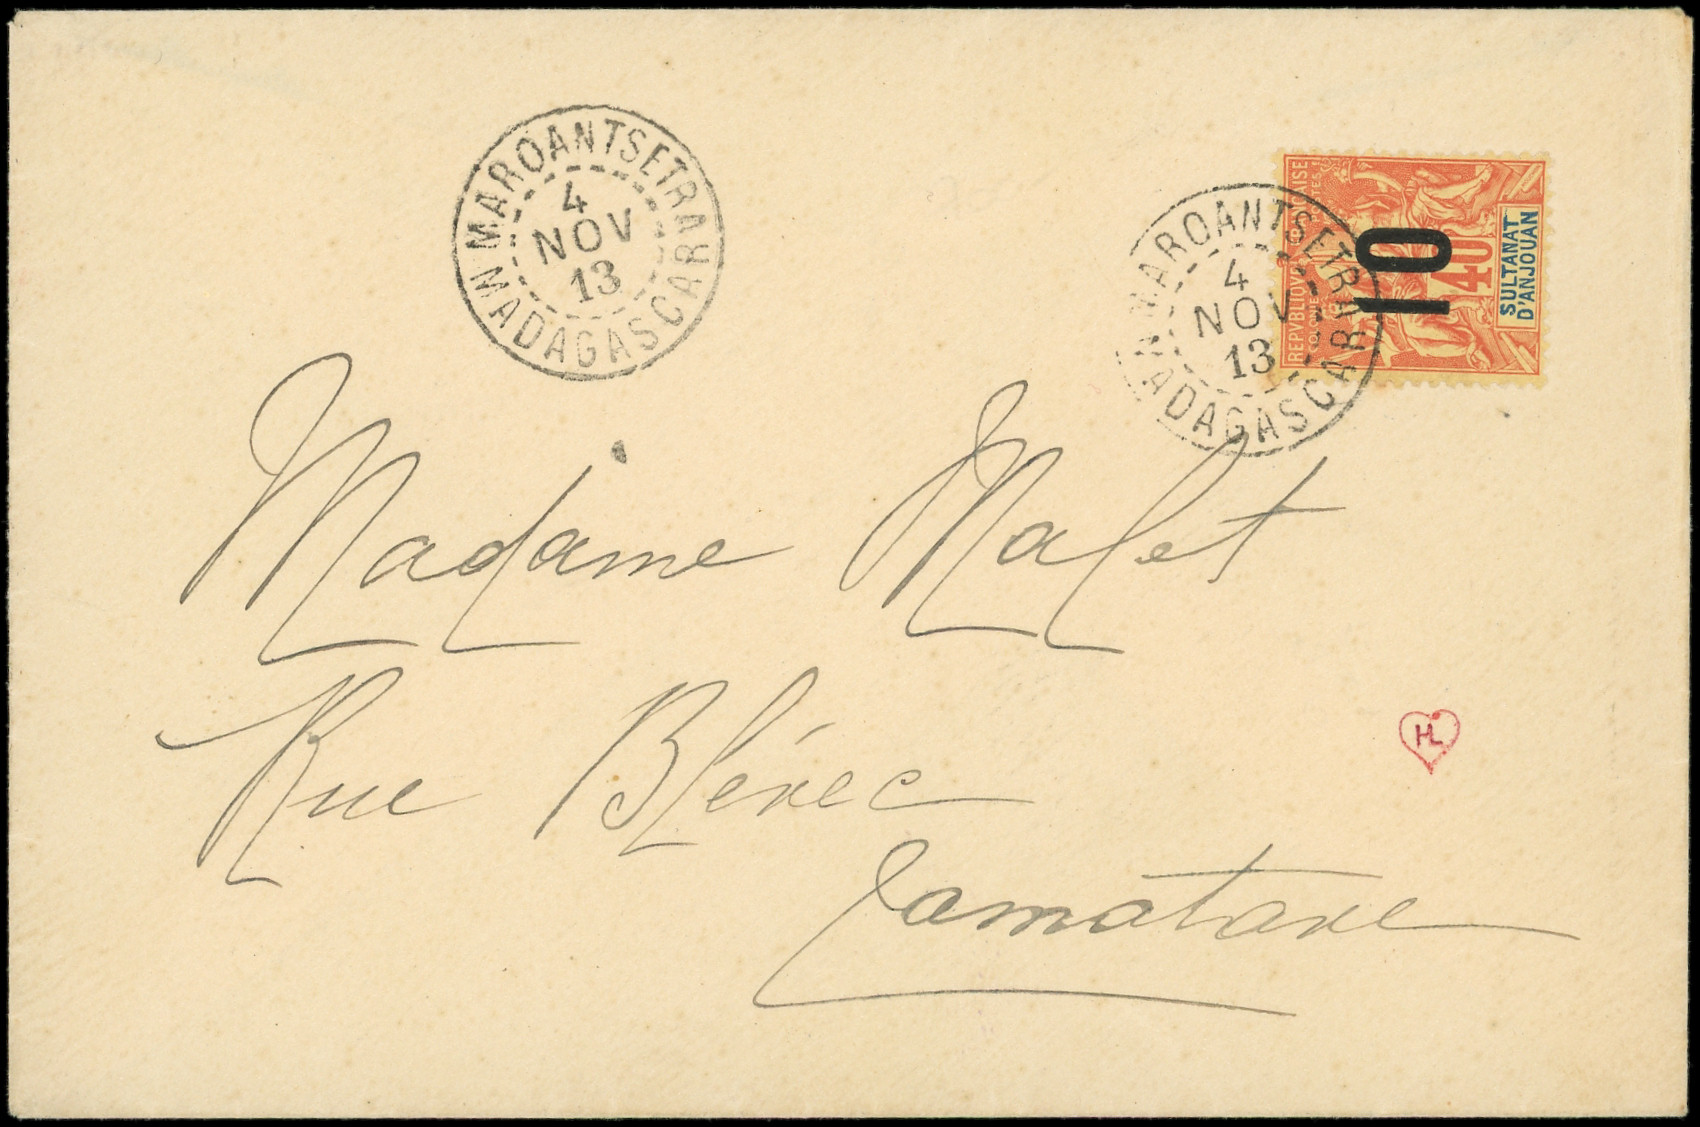 MAROANTSETRA
4
NOV
13
MADAGASCAR
MAROANTSETRA
4
NOV
13
MADAGASCAR
REPVBLIQVE FRANÇAISE
COLONIES POSTES
10
40
SULTANAT
D'ANJOUAN
Madame Malet
Rue Blévec
Tamatave
HL